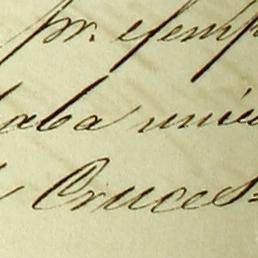 pr. ejemp
aba unic
Cruces=